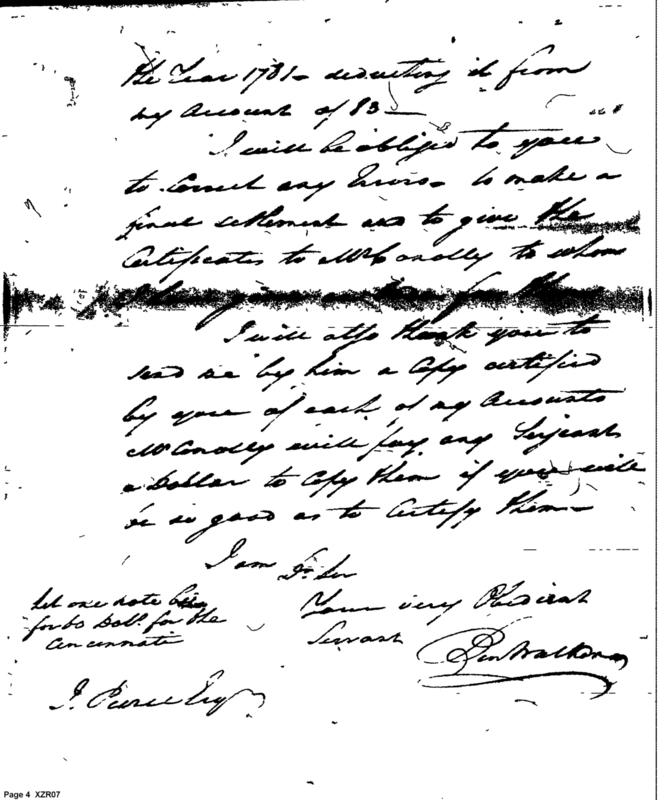 the Year 1781 – deducting it from
my Account of 83 –
I will be obliged to you
to correct any Errors – to make a
final settlement and to give the
Certificates to Mr Conolly to whom
I have given an order for them
I will also thank you to
send me by him a Copy certified
by you of each of my Accounts
Mr Conolly will pay any Serjeant
a Dollar to Copy them if you will
be so good as to Certify them –
I am Dr Sir
Your very Obedient
Servant
Ben Walker
let one note be
for 60 Dolls for the
Cincinnati
J. Pierce Esq
Page 4 XZR07